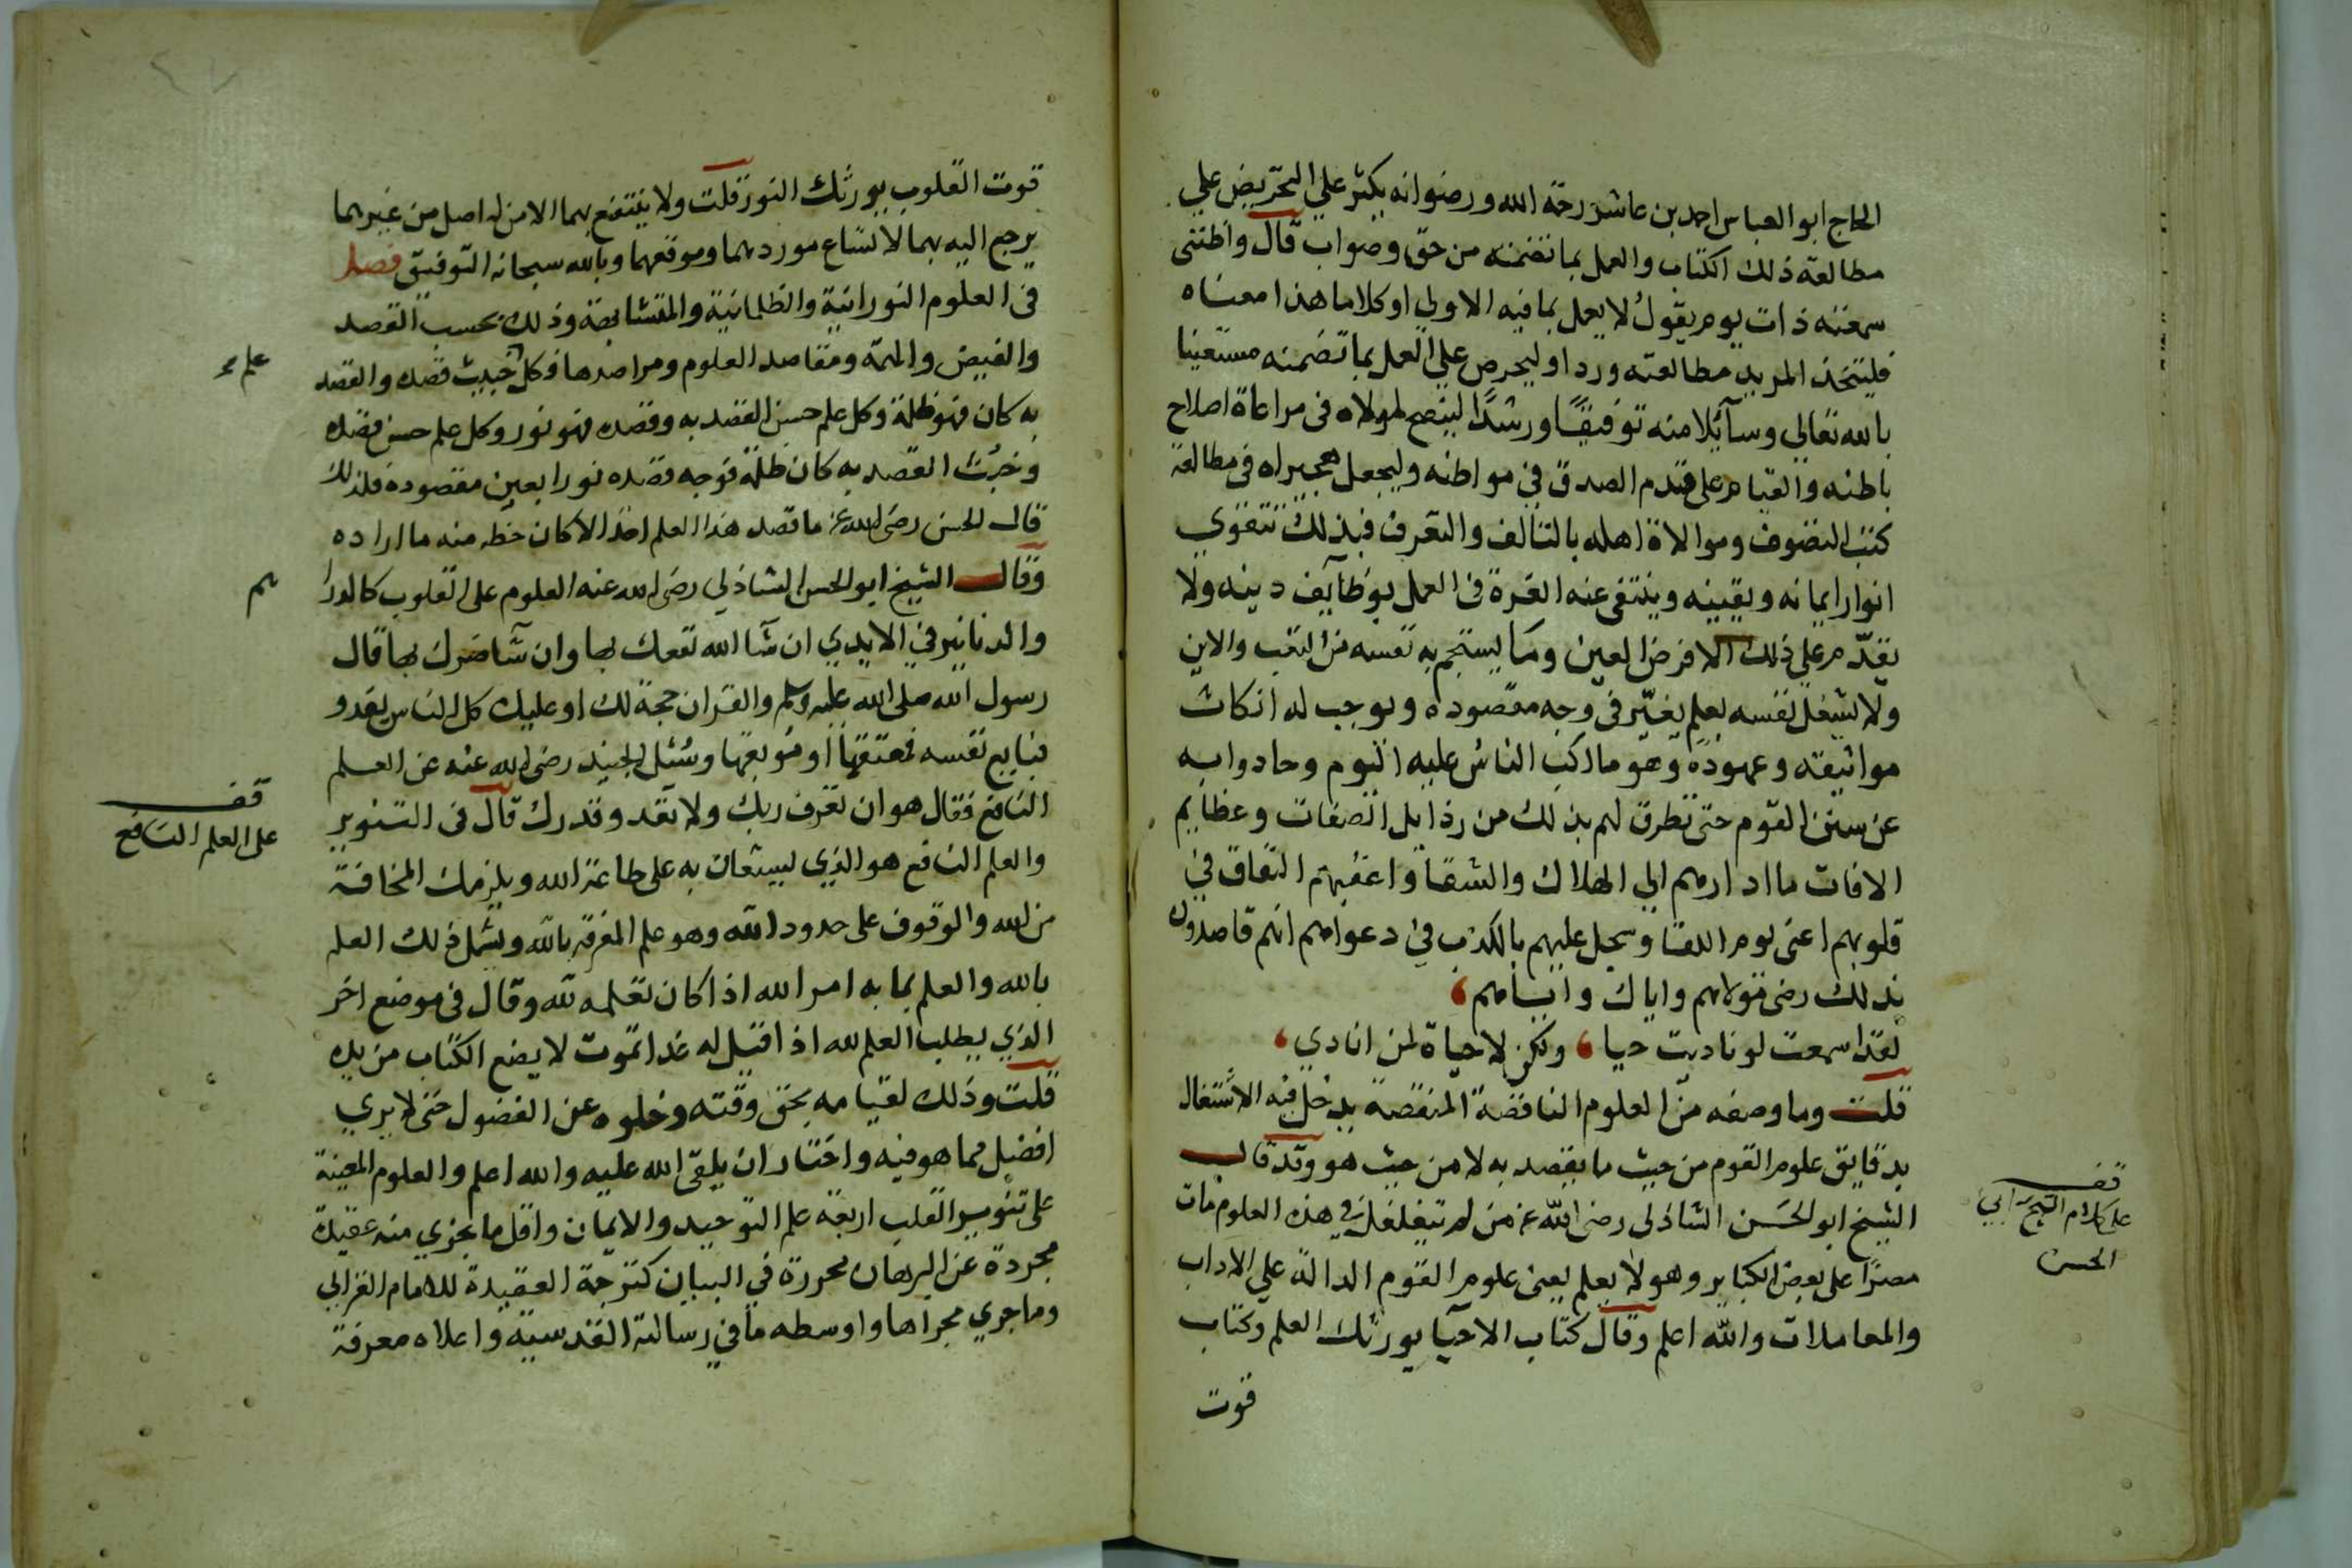 الحاج ابو العباس احمد بن عاشر رحمة الله ورضوانه يكثر علي التحريض علي
مطالعة ذلك الكتاب والعمل بما تضمنه من حق وصواب قال واظنني
سمعته ذات يوم يقول لا يعمل بما فيه الا ولي او كلاما هذا معناه
فليتخذ المريد مطالعته وردا وليحرص علي العمل بما تضمنه مستعينا
بالله تعالي وسآئلا منه توفيقًا ورشدًا لينصح لمولاه في مراعاة اصلاح
باطنه والقيام علي قدم الصدق في مواطنه وليجعل هجيراه في مطالعة
كتب التصوف وموالاة اهله بالتالف والتعرف فبذلك تتقوي
انوار ايمانه ويقينه وينتفي عنه الغرة في العمل بوظآيف دينه ولا
يقدّم علي ذلك الا فرض العين وما يستجم به نفسه من التعب والاين
ولا يشغل نفسه بعلم يغبّر في وجه مقصوده ويوجب له انكاث
مواثيقه وعهوده وهو ما اكب الناس عليه اليوم وحادوا به
عن سنن القوم حتى تطرق لهم بذلك من رذايل الصفات وعظايم
الافات ما ادارهم الي الهلاك والشقا واعقبهم النفاق في
قلوبهم اعني يوم اللقا وسجل عليهم بالكذب في دعواهم انهم قاصدون
بذلك رضي مولاهم واياك واياهم ،
لقد اسمعت لو ناديت حيا ، ولكن لا حياة لمن انادي ،
قلت وما وصفه من العلوم الناقصة المنقصة يدخل فيه الاشتغال
بدقايق علوم القوم من حيث ما يقصد به لا من حيث هو وقد قال
الشيخ ابو الحسن الشاذلي رضي الله عنه من لم يتغلغل في هذه العلوم مات
مصرًا على بعض الكباير وهو لا يعلم يعني علوم القوم الدالة علي الاداب
والمعاملات والله اعلم وقال كتاب الاحيا يورثك العلم وكتاب
قوت
قف
على كلام الشيخ ابي
الحسن
قوت القلوب يورثك النور قلت ولا ينتفع بهما الا من له اصل من غيرهما
يرجع اليه بهما لاتساع موردهما وموقعهما وبالله سبحانه التوفيق فصل
في العلوم النورانية والظلمانية والمتشابهة وذلك بحسب القصد
والفيض والهمة ومقاصد العلوم ومراصدها فكل خبيث قصده والقصد
به كان فهو ظلمة وكل علم حسن القصد به وقصده فهو نور وكل علم حسن قصده
وخبث القصد به كان ظلمة فوجه قصده نورا بعين مقصوده فلذلك
قال الحسن رضي الله عنه ما قصد هذا العلم احد الا كان حظه منه ما اراده
وقال الشيخ ابو الحسن الشاذلي رضي الله عنه العلوم على القلوب كالدرا
والدنانير في الايدي ان شا الله نفعك بها وان شآ ضرك بها قال
رسول الله صلى الله عليه وسلم والقران حجة لك او عليك كل الناس يغدو
فبايع نفسه فمعتقها او موبقها وسُئل الجنيد رضي الله عنه عن العلم
النافع فقال هو ان تعرف ربك ولا تعد وقدرك قال في التنوير
والعلم النافع هو الذي ليستعان به على طاعة الله ويلزمك المخافة
من الله والوقوف على حدود الله وهو علم المعرفة بالله ويشمل ذلك العلم
بالله والعلم بما به امر الله اذا كان تعلمه لله وقال في موضع اخر
الذي يطلب العلم لله اذا قيل له غدا تموت لا يضع الكتاب من يده
قلت وذلك لقيامه بحق وقته وخلوه عن الفضول حتى لا يري
افضل مما هو فيه واختار ان يلقى الله عليه والله اعلم والعلوم المعينة
على تنوير القلب اربعة علم التوحيد والايمان واقل ما يجزي منه عقيدة
مجردة عن البرهان محررة في البيان كترجمة العقيدة للامام الغزالي
وما جري مجراها واوسطه ما في رسالته القدسية واعلاه معرفة
علم
هم
قف
على العلم النافع